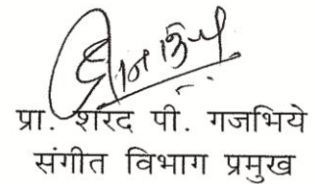 प्रा. शरद पी. गजभिये
संगीत विभाग प्रमुख